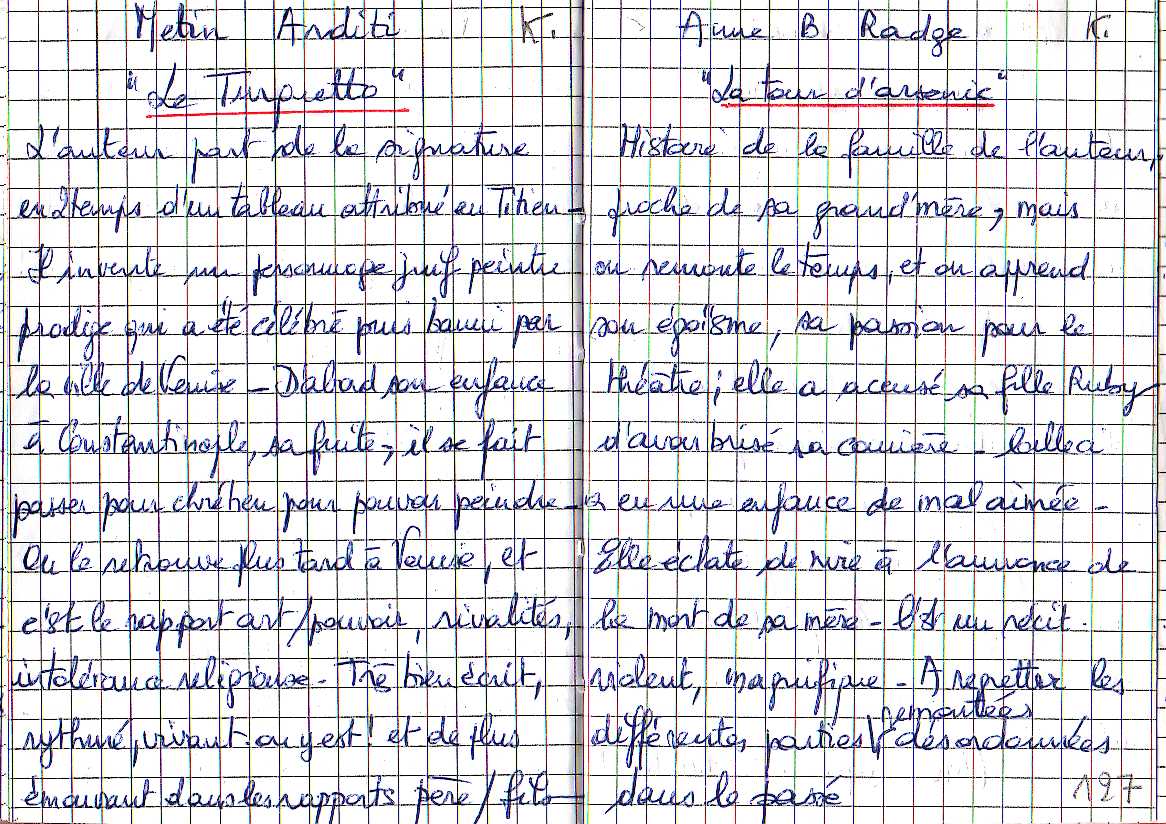 Metin Arditi K.
"Le Turquetto"
L'auteur part de la signature
en 2 temps d'un tableau attribué au Titien -
Il invente un personnage juif peintre
prodige qui a été célébré puis banni par
la ville de Venise - D'abord son enfance
à Constantinople, sa fuite, il se fait
passer pour chrétien pour pouvoir peindre -
On le retrouve plus tard à Venise, et
c'est le rapport art/pouvoir, rivalités,
intolérance religieuse - Très bien écrit,
rythmé, vivant. on y est ! et de plus
émouvant dans les rapports père/fils -
Anne B. Radge K.
"La tour d'arsenic"
Histoire de la famille de l'auteur,
proche de sa grand'mère, mais
on remonte le temps, et on apprend
son égoïsme, sa passion pour le
théâtre ; elle a accusé sa fille Ruby
d'avoir brisé sa carrière - Celle ci
a eu une enfance de mal aimée -
Elle éclate de rire à l'annonce de
la mort de sa mère - C'est un récit
violent, magnifique - A regretter les
remontées
différentes parties désordonnées
dans le passé
197